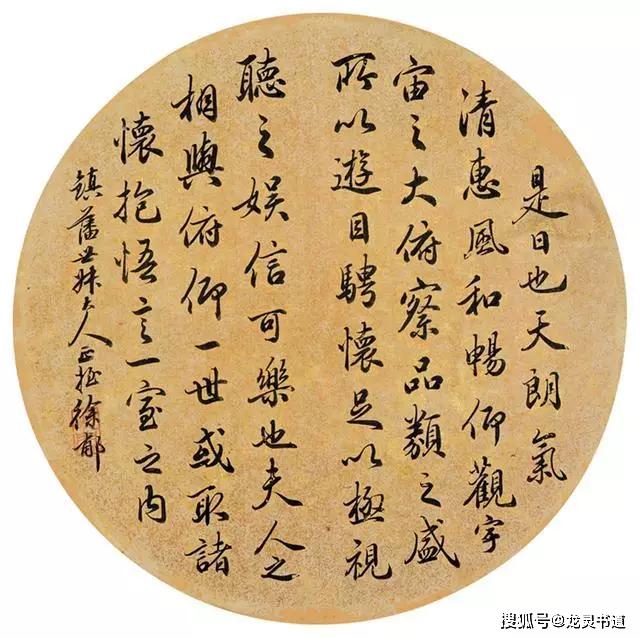 是日也天朗氣
清惠風和暢仰觀宇
宙之大俯察品類之盛
所以遊目騁懷足以極視
聽之娛信可樂也夫人之
相與俯仰一世或取諸
懷抱悟言一室之內
鎮藩世妹夫人正拙徐郙
搜狐号@龙灵书道